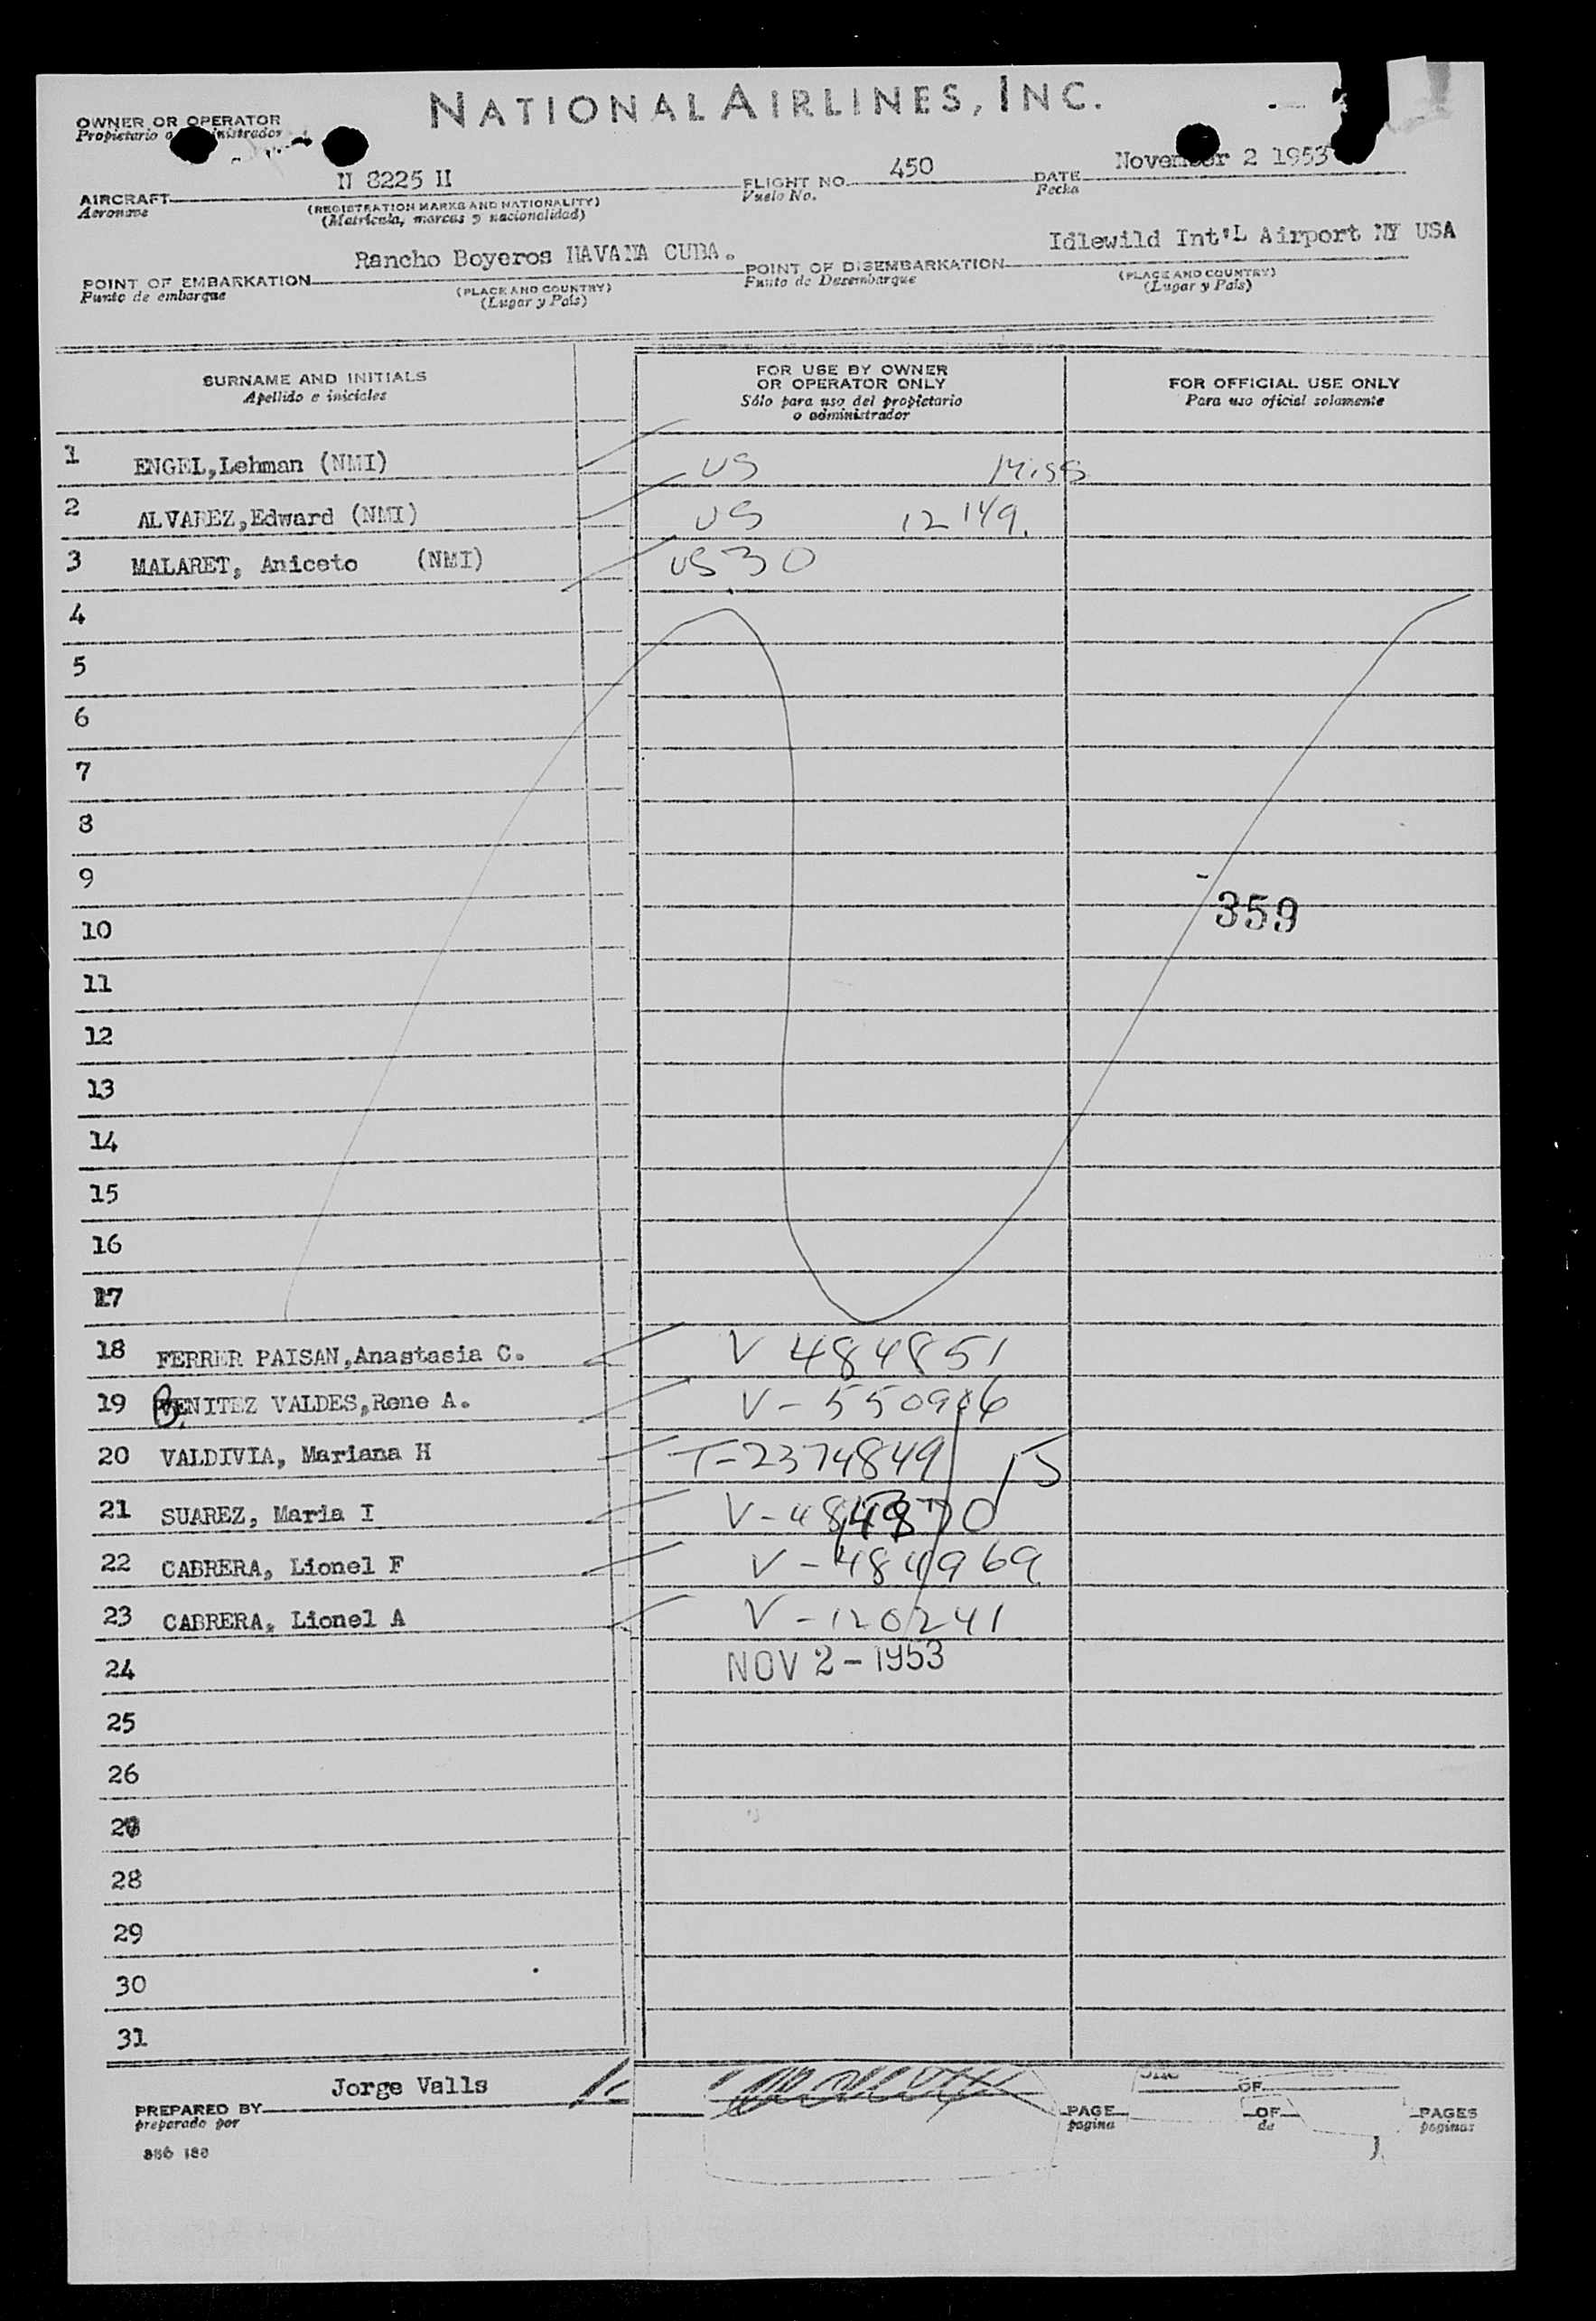 NATIONAL AIRLINES, INC.
OWNER OR OPERATOR
Propietario o
N 8225 H
FLIGHT NO. 450
Vuelo No.
DATE November 2 1953
Fecha
AIRCRAFT
Aeronave
(REGISTRATION MARKS AND NATIONALITY)
(Matricula, marcas y nacionalidad)
POINT OF EMBARKATION Rancho Boyeros HAVANA CUBA.
Punto de embarque
(PLACE AND COUNTRY)
(Lugar y País)
POINT OF DISEMBARKATION Idlewild Int'L Airport NY USA
Punto de Desembarque
(PLACE AND COUNTRY)
(Lugar y País)
SURNAME AND INITIALS
Apellido e iniciales
FOR USE BY OWNER
OR OPERATOR ONLY
Sólo para uso del propietario
o administrador
FOR OFFICIAL USE ONLY
Para uso oficial solamente
1 ENGEL,Lehman (NMI) US Miss
2 ALVAREZ,Edward (NMI) US 12149.
3 MALARET, Aniceto (NMI) US 30
4
5
6
7
8
9
359
10
11
12
13
14
15
16
17
18 FERRER PAISAN,Anastasia C. V 484851
19 BENITEZ VALDES,Rene A. V-550906
20 VALDIVIA, Mariana H T-2374849
21 SUAREZ, Maria I
22 CABRERA, Lionel F V-484969
23 CABRERA, Lionel A V-120241
24 NOV 2-1953
25
26
27
28
29
30
31
PREPARED BY Jorge Valls
preparado por
PAGE OF PAGES
pagina de paginas